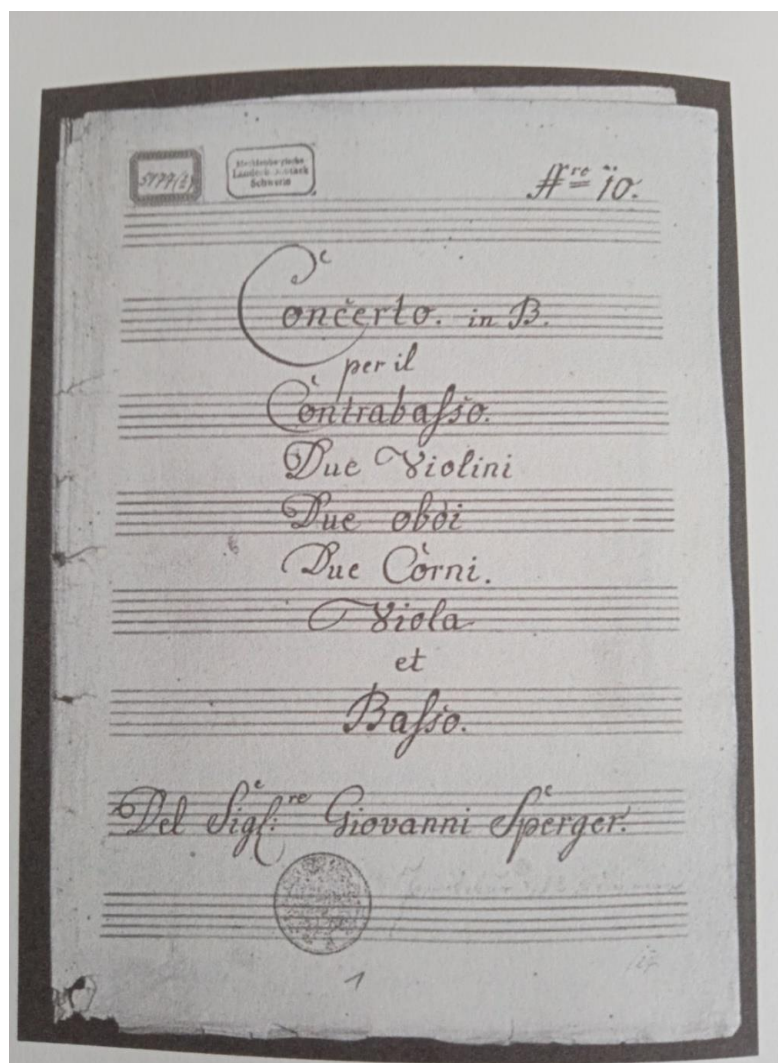 5177(2) Mecklenburgische
Landesbibliothek
Schwerin
Nre 10.
Concerto. in B.
per il
Contrabasso.
Due Violini
Due obòi
Due Còrni.
Viola
et
Basso.
Del Sigl:re Giovanni Sperger.
1